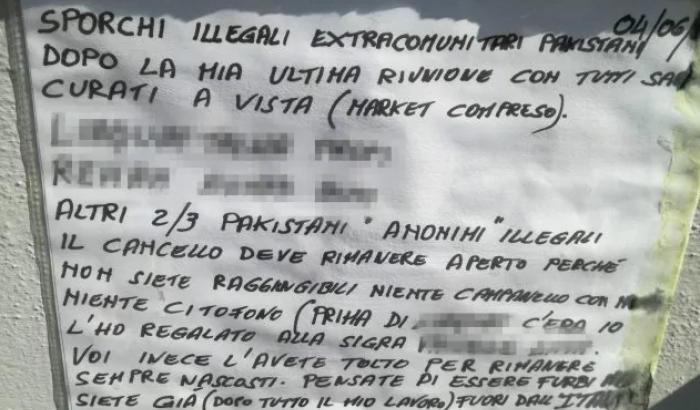 04/06/
SPORCHI ILLEGALI EXTRACOMUNITARI PAKISTANI
DOPO LA MIA ULTIMA RIUNIONE CON TUTTI
CURATI A VISTA (MARKET COMPRESO).
ALTRI 2/3 PAKISTANI "ANONIMI" ILLEGALI
IL CANCELLO DEVE RIMANERE APERTO PERCHÉ
NON SIETE RAGGINGIBILI NIENTE CAMPANELLO CON
NIENTE CITOFONO (PRIMA DI C'ERA IO
L'HO REGALATO ALLA SIGRA
VOI INECE L'AVETE TOLTO PER RIMANERE
SEMPRE NASCOSTI. PENSATE DI ESSERE FURBI
SIETE GIÀ (DOPO TUTTO IL MIO LAVORO) FUORI DALL'ITALI